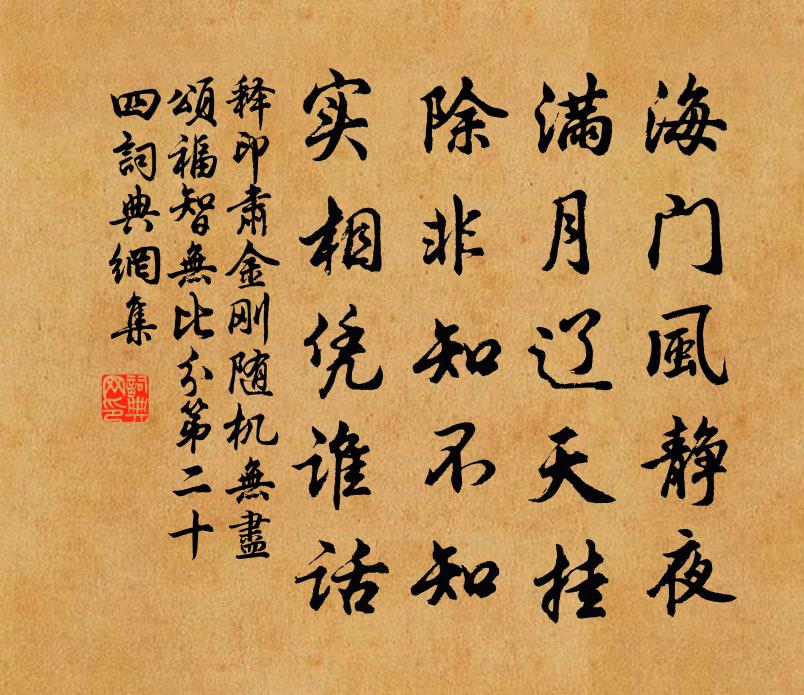 海门風静夜
满月辽天挂
除非知不知
实相凭谁话
释印肃金刚随机無盡
頌福智無比分第二十
四詞典網集
詞典
网印